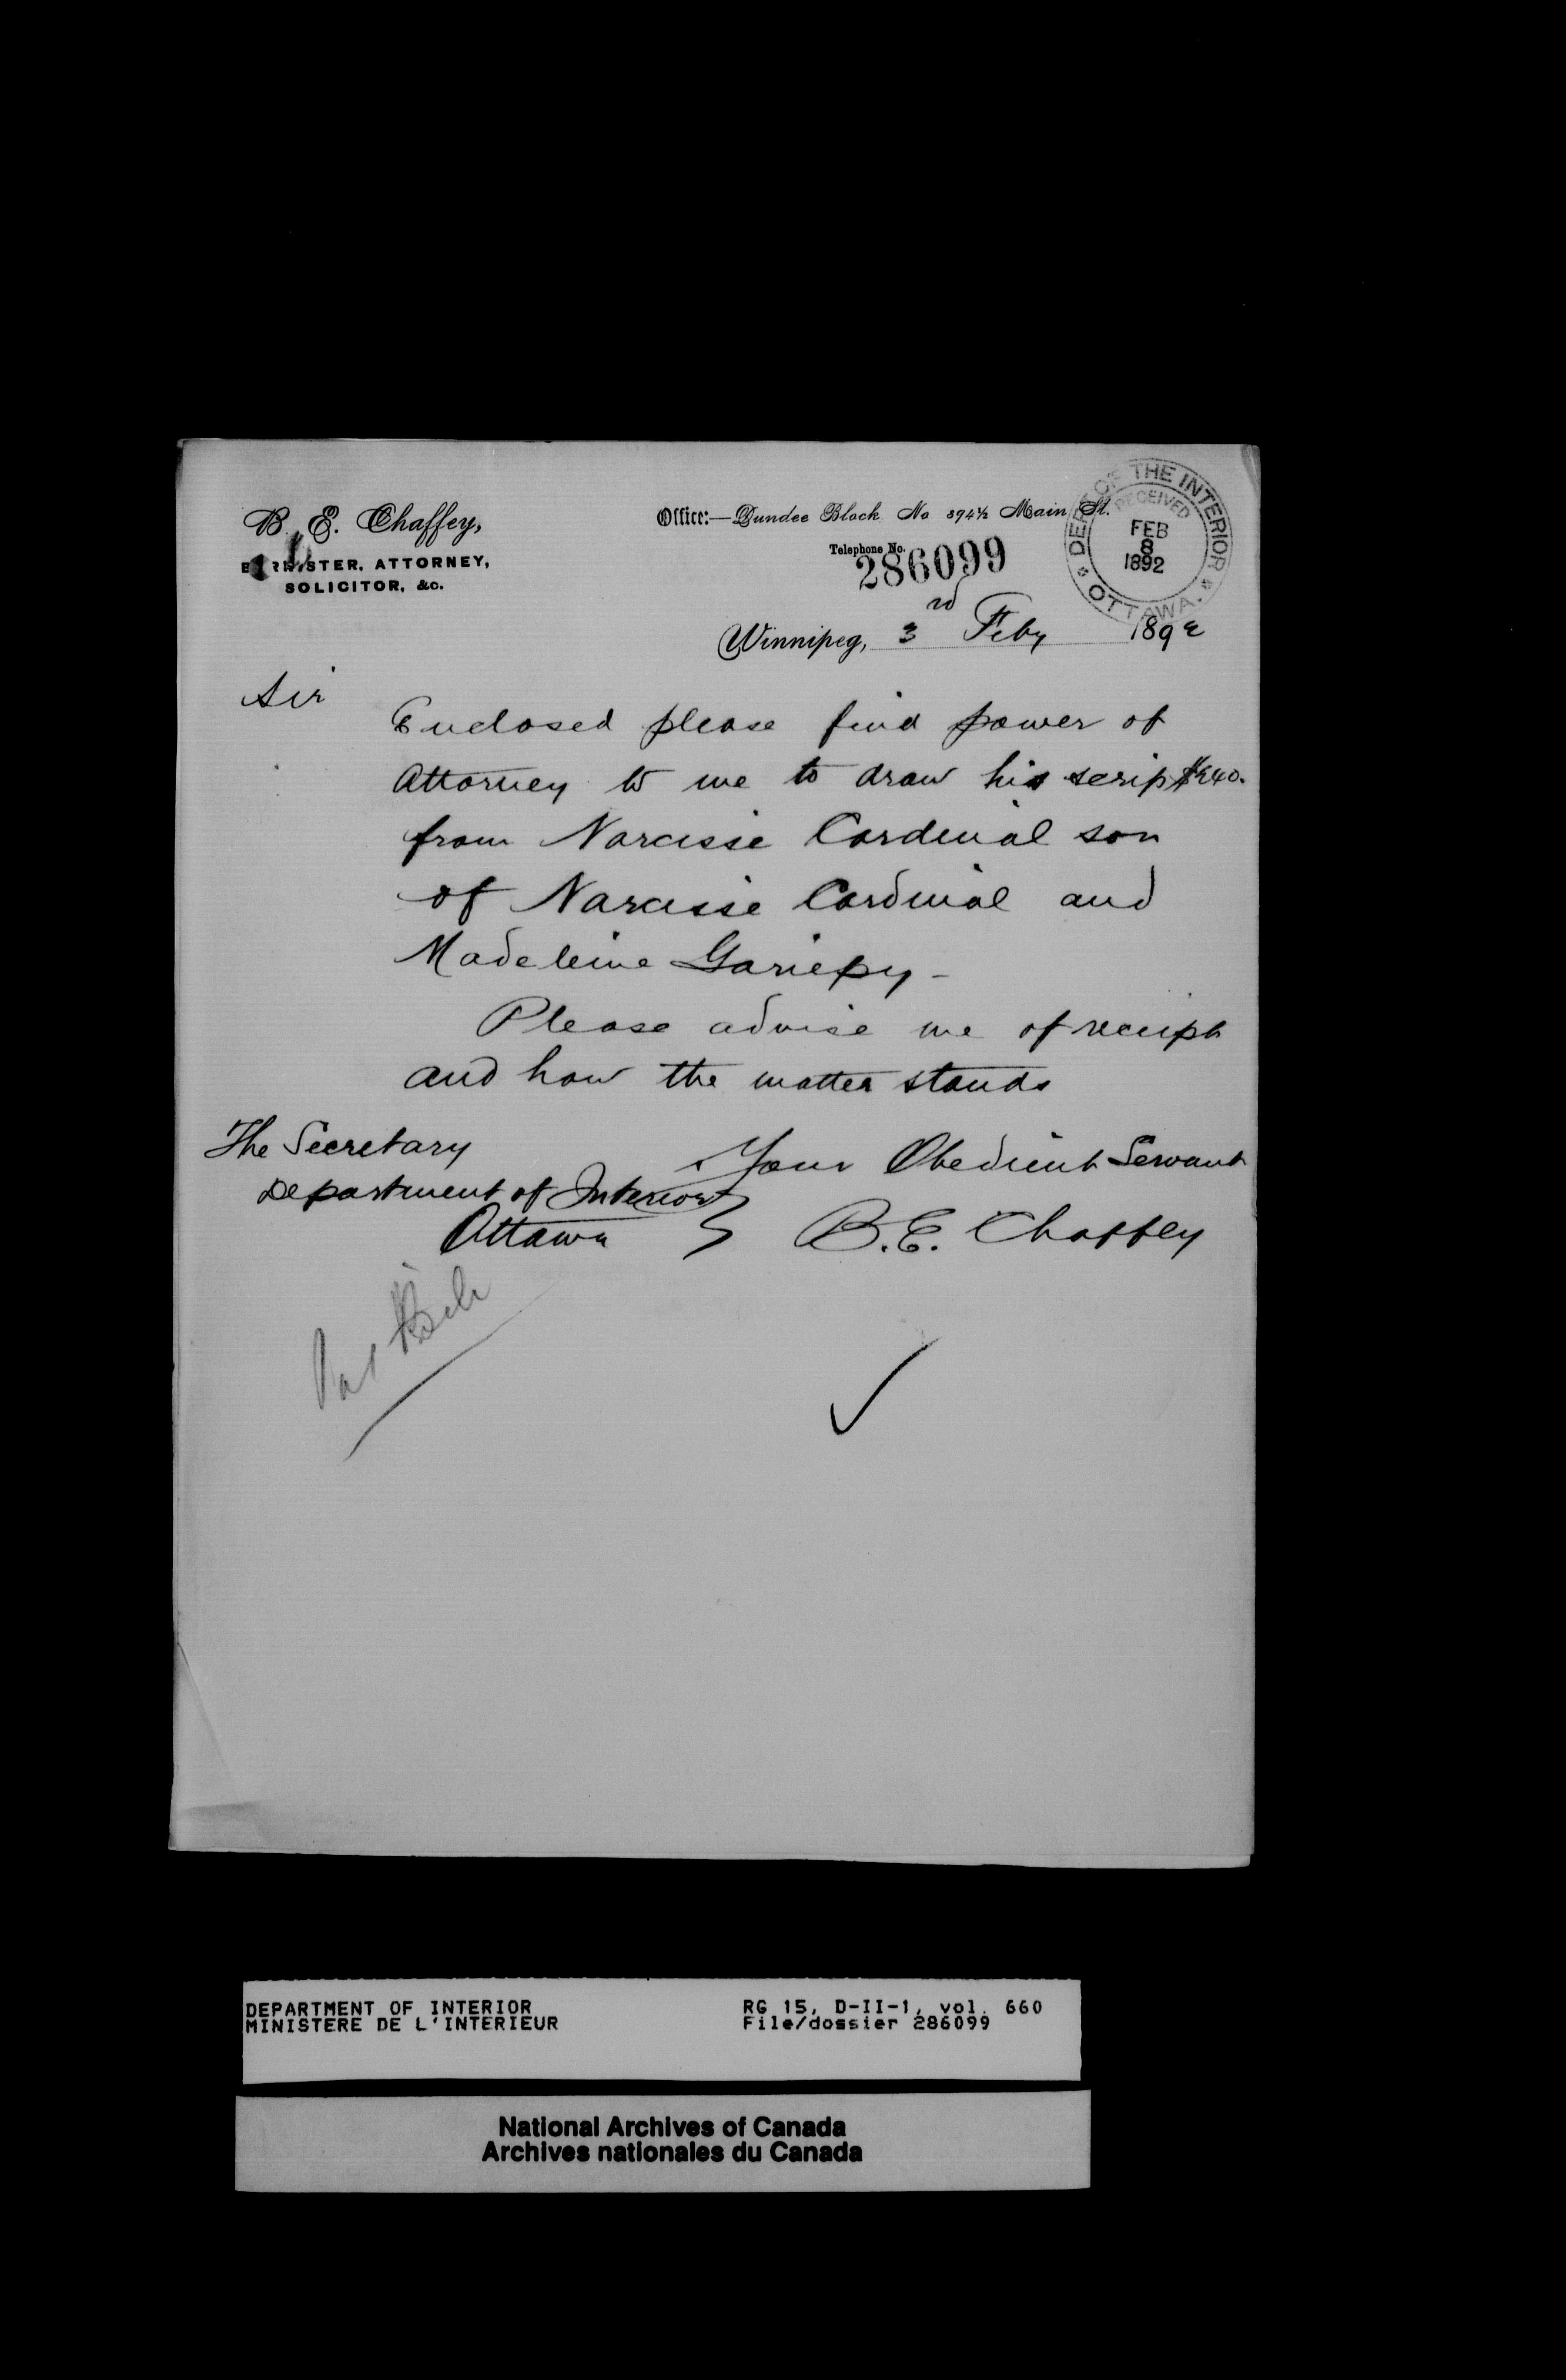 B. E. Chaffey,
BARRISTER, ATTORNEY,
SOLICITOR, &c.
Office:—Dundee Block No 394½ Main St.
Telephone No.
286099
DEPT. OF THE INTERIOR
RECEIVED
FEB
8
1892
OTTAWA.
Winnipeg, 3rd Feby 1892
Sir
Enclosed please find power of
Attorney to me to draw his scrip $240.
from Narcisse Cardinal son
of Narcisse Cardinal and
Madeleine Gariepy -
Please advise me of receipt
and how the matter stands
The Secretary
Department of Interior
Ottawa
Your Obedient Servant
B.E. Chaffey
DEPARTMENT OF INTERIOR
MINISTERE DE L'INTERIEUR
RG 15, D-II-1, vol. 660
File/dossier 286099
National Archives of Canada
Archives nationales du Canada